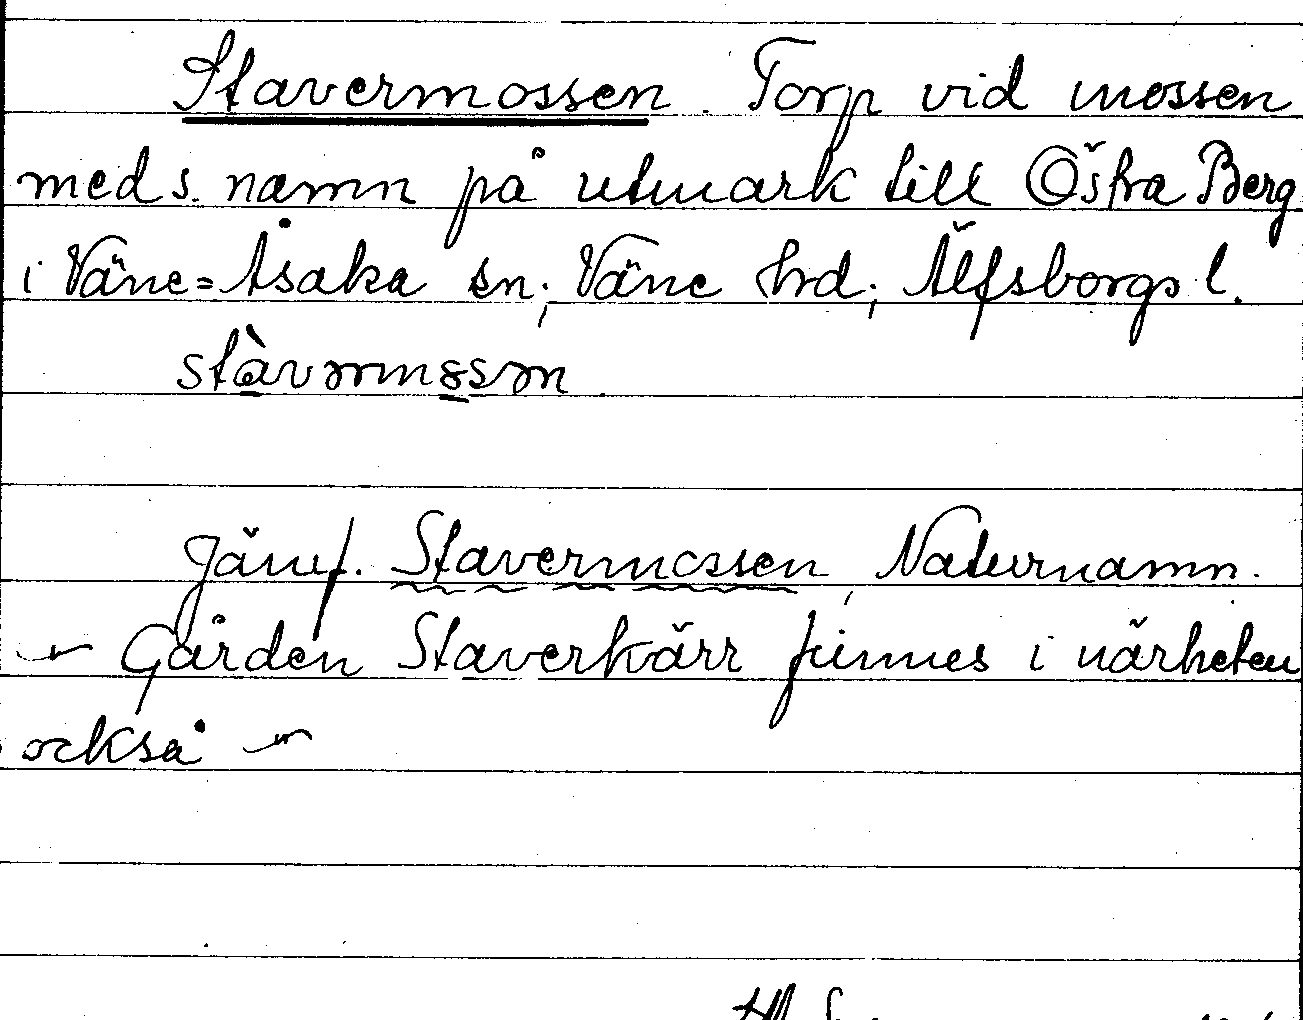 Stavermossen. Torp vid mossen
med s. namn på utmark till Östra Berg
i Väne=Åsaka sn; Väne hrd; Älfsborgs l.
Jämf. Stavermossen, Naturnamn.
– Gården Staverkärr finnes i närheten
också –